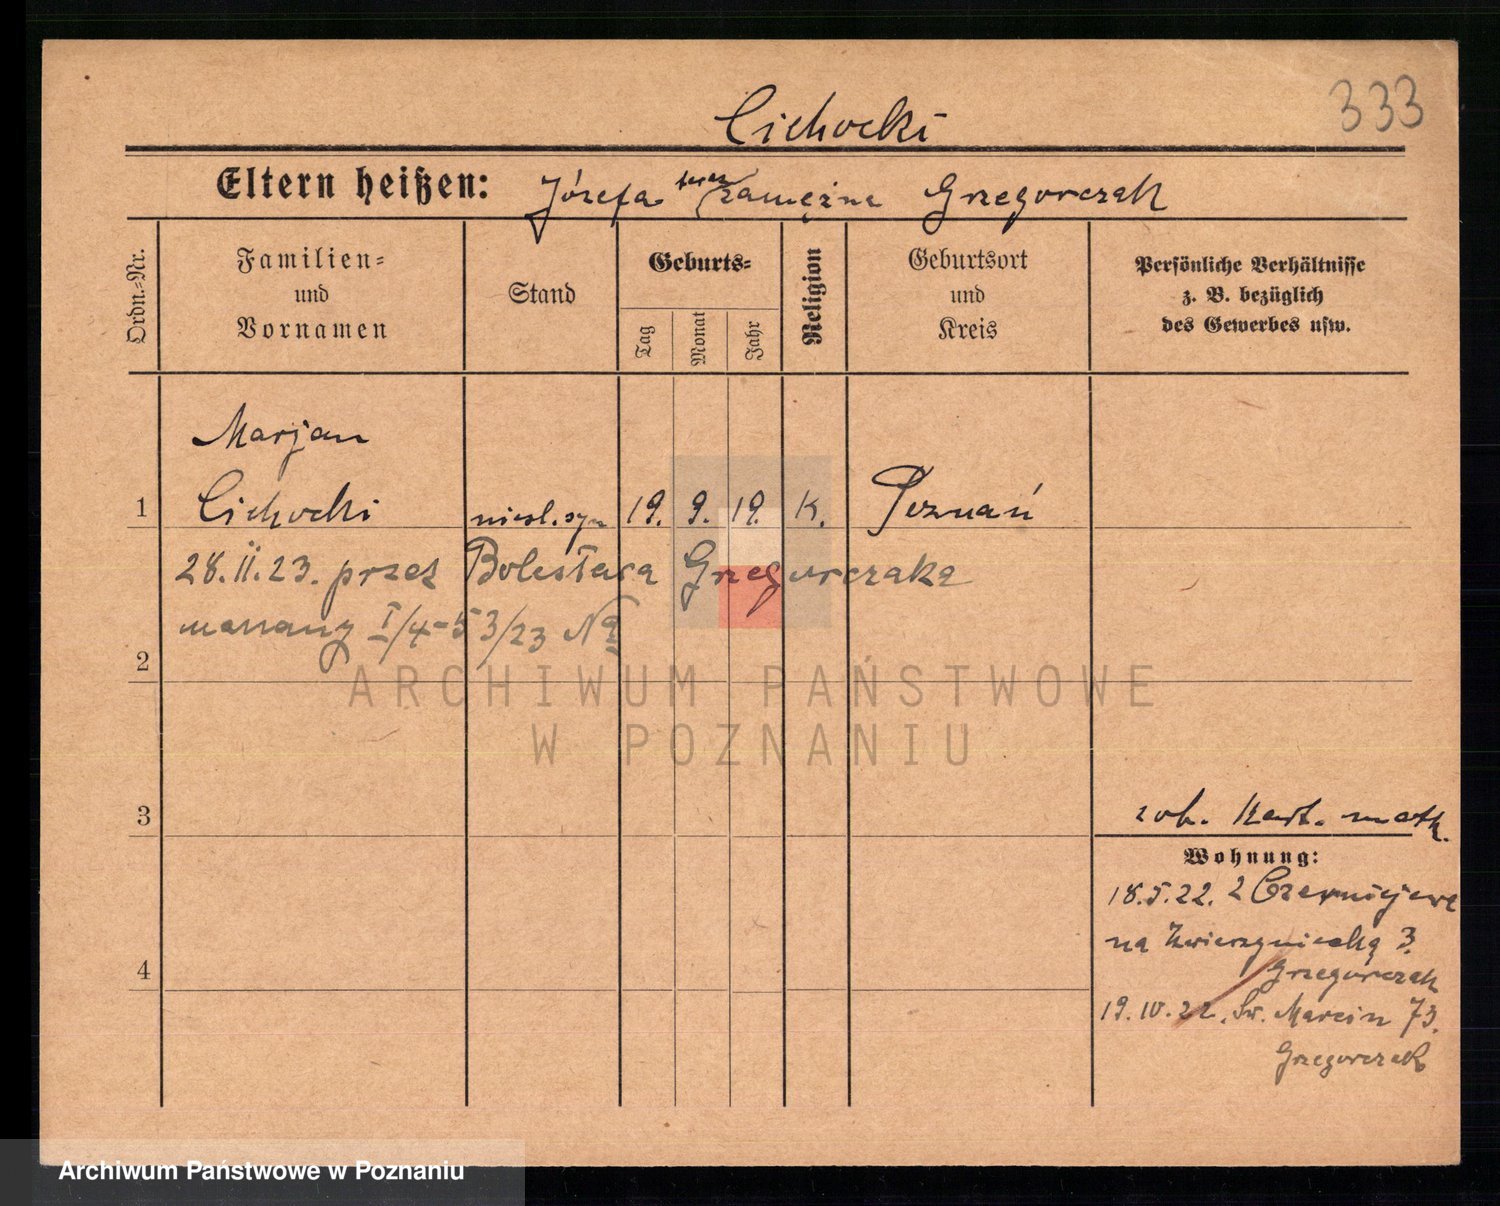 333
Cichocki
Eltern heißen: Józefa teraz zamężna Grzegorczak
Ordn.-Nr.
Familien-
und
Vornamen
Stand
Geburts-
Tag
Monat
Jahr
Religion
Geburtsort
und
Kreis
Persönliche Verhältnisse
z. B. bezüglich
des Gewerbes usw.
Marjan
1 Cichocki nieśl. syn 19. 9. 19. K. Poznań
28.II.23. przez Bolesława Grzegorczaka
I/4-53/23
2
ARCHIWUM PAŃSTWOWE
W POZNANIU
3
zob. Kart. matk.
Wohnung:
18.5.22. z Czerniejewa
na Zwierzyniecką 3.
Grzegorczak
4
19.IV.22. Św. Marcin 73.
Grzegorczak
Archiwum Państwowe w Poznaniu